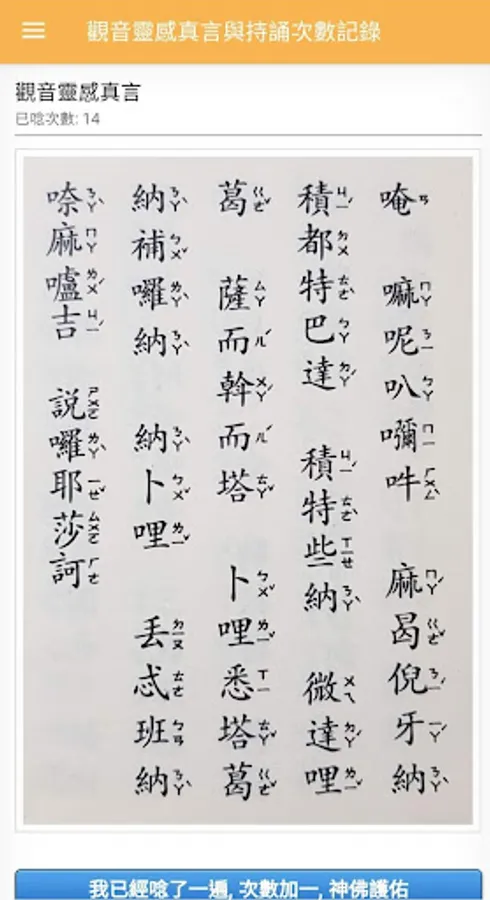 觀音靈感真言與持誦次數記錄
觀音靈感真言
已唸次數: 14
唵ㄢ 嘛ㄇㄚˊ呢ㄋㄧ叭ㄅㄚ嘸ㄇㄧ吽ㄏㄨㄥ 麻ㄇㄚˊ曷ㄍㄜˇ倪ㄋㄧˊ牙ㄧㄚˊ納ㄋㄚˋ
積ㄐㄧ都ㄉㄨ特ㄊㄜˋ巴ㄅㄚ達ㄉㄚˊ 積ㄐㄧ特ㄊㄜˋ些ㄒㄧㄝ納ㄋㄚˋ 微ㄨㄟ達ㄉㄚˊ哩ㄌㄧ
葛ㄍㄜˇ 薩ㄙㄚ而ㄦˊ斡ㄨㄚˋ而ㄦˊ塔ㄊㄚˇ 卜ㄅㄨˇ哩ㄌㄧ悉ㄒㄧ塔ㄊㄚˇ葛ㄍㄜˇ
納ㄋㄚˋ補ㄅㄨˇ囉ㄌㄚˊ納ㄋㄚˋ 納ㄋㄚˋ卜ㄅㄨˇ哩ㄌㄧ 丟ㄉㄧㄡ忒ㄊㄜˋ班ㄅㄢ納ㄋㄚˋ
㗇ㄋㄚˋ麻ㄇㄚˊ嚧ㄌㄨˊ吉ㄐㄧˊ 說ㄕㄨㄛ囉ㄌㄚˊ耶ㄧㄝ莎ㄙㄨㄛ訶ㄏㄜ
我已經唸了一遍, 次數加一, 神佛護佑